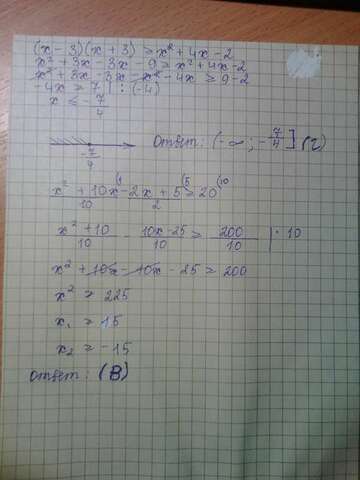 (x - 3)(x + 3) ≥ x² + 4x - 2
x² + 3x - 3x - 9 ≥ x² + 4x - 2
x² + 3x - 3x - x² - 4x ≥ 9 - 2
-4x ≥ 7 | : (-4)
x ≤ - 7/4
-7/4
Ответ: (-∞; -7/4] (г)
(1 (5 (10
x² + 10x/10 - 2x + 5/2 ≥ 20
x² + 10/10 - 10x - 25/10 ≥ 200/10 | · 10
x² + 10x - 10x - 25 ≥ 200
x² ≥ 225
x₁ ≥ 15
x₂ ≥ -15
Ответ: (В)